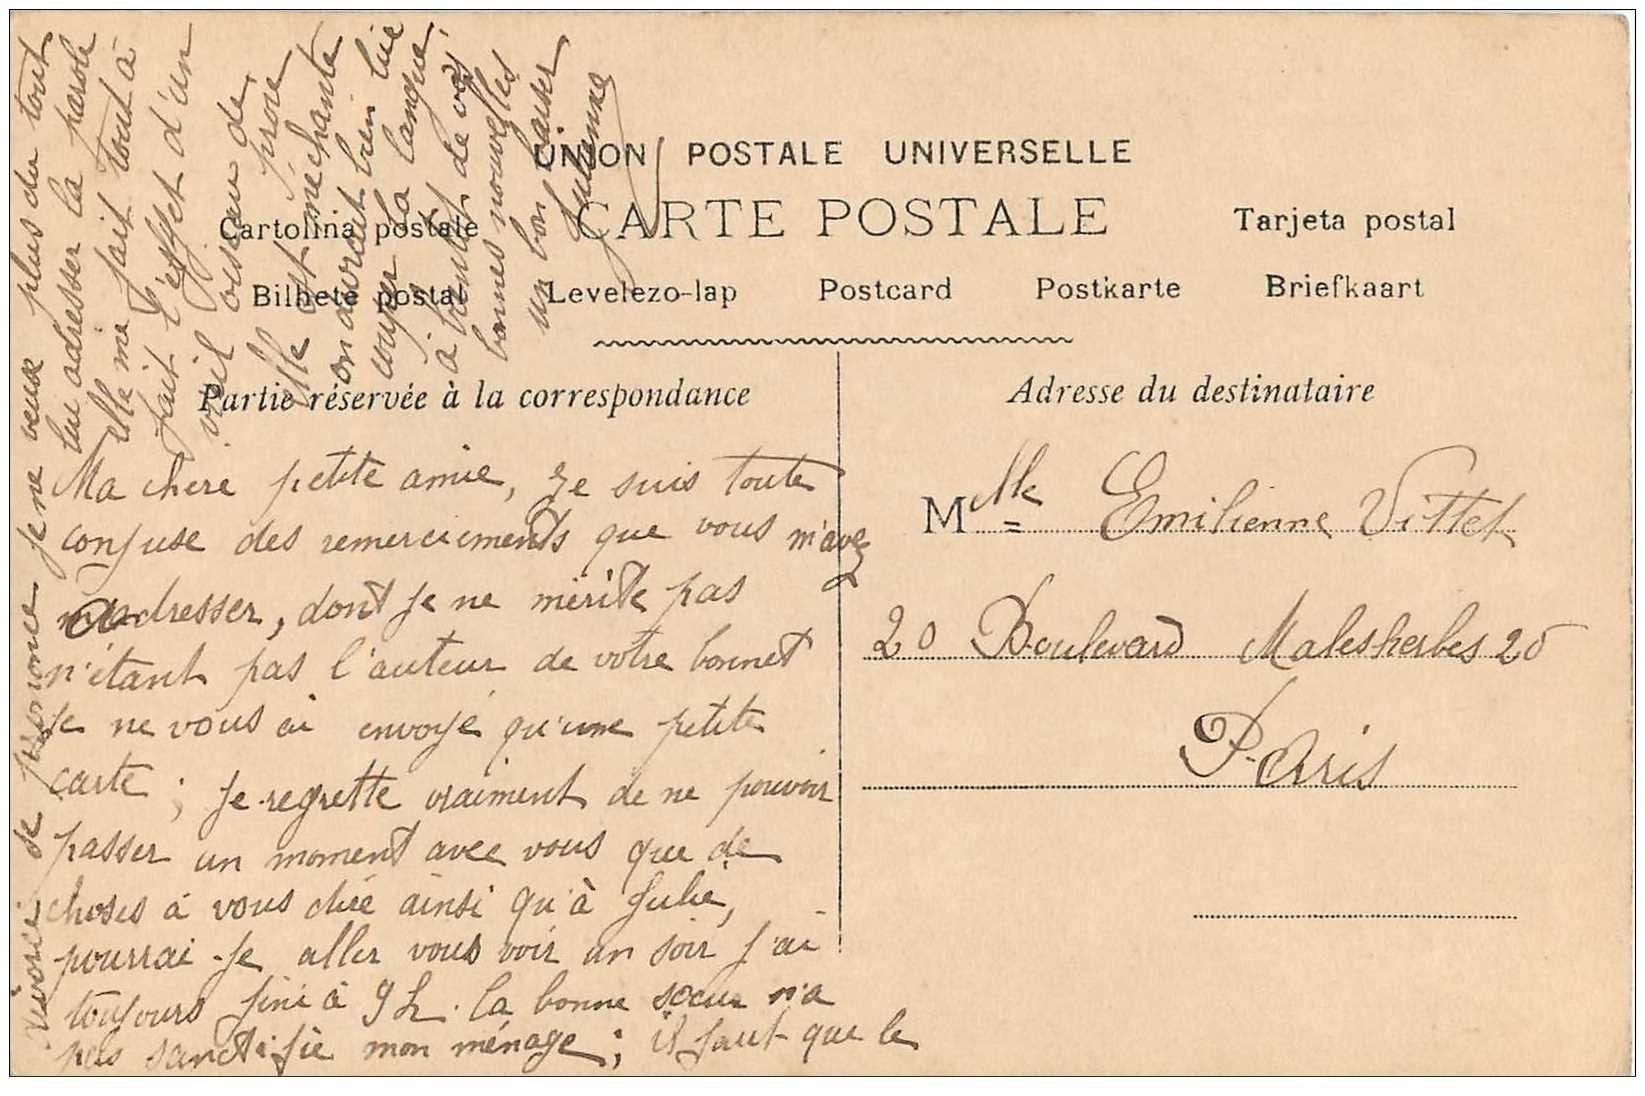 UNION POSTALE UNIVERSELLE
CARTE POSTALE
Cartolina postale
Tarjeta postal
Bilhete postal
Levelezo-lap
Postcard
Postkarte
Briefkaart
Partie réservée à la correspondance
Adresse du destinataire
Ma chere petite amie, Je suis toute
confuse des remerciements que vous m'avez
adresser, dont je ne mérite pas
n'étant pas l'auteur de votre bonnet
Je ne vous ai envoyé qu'une petite
carte ; Je regrette vraiment de ne pouvoir
passer un moment avec vous que de
choses à vous dire ainsi qu'à Julie,
pourrai-je aller vous voir un soir j'ai
toujours fini à 9h. la bonne sœur n'a
pas sanctifié mon ménage ; il faut que le
divorce se prononce je ne veux plus du tout
lui adresser la parole
elle me fait tout à
fait l'effet d'un
vieil oiseau de
proie
elle est méchante
on devrait bien lui
couper la langue
à bientôt de vos
bonnes nouvelles
un bon baiser
Julienne
Melle Emilienne Vittet
20 Boulevard Malesherbes 20
Paris